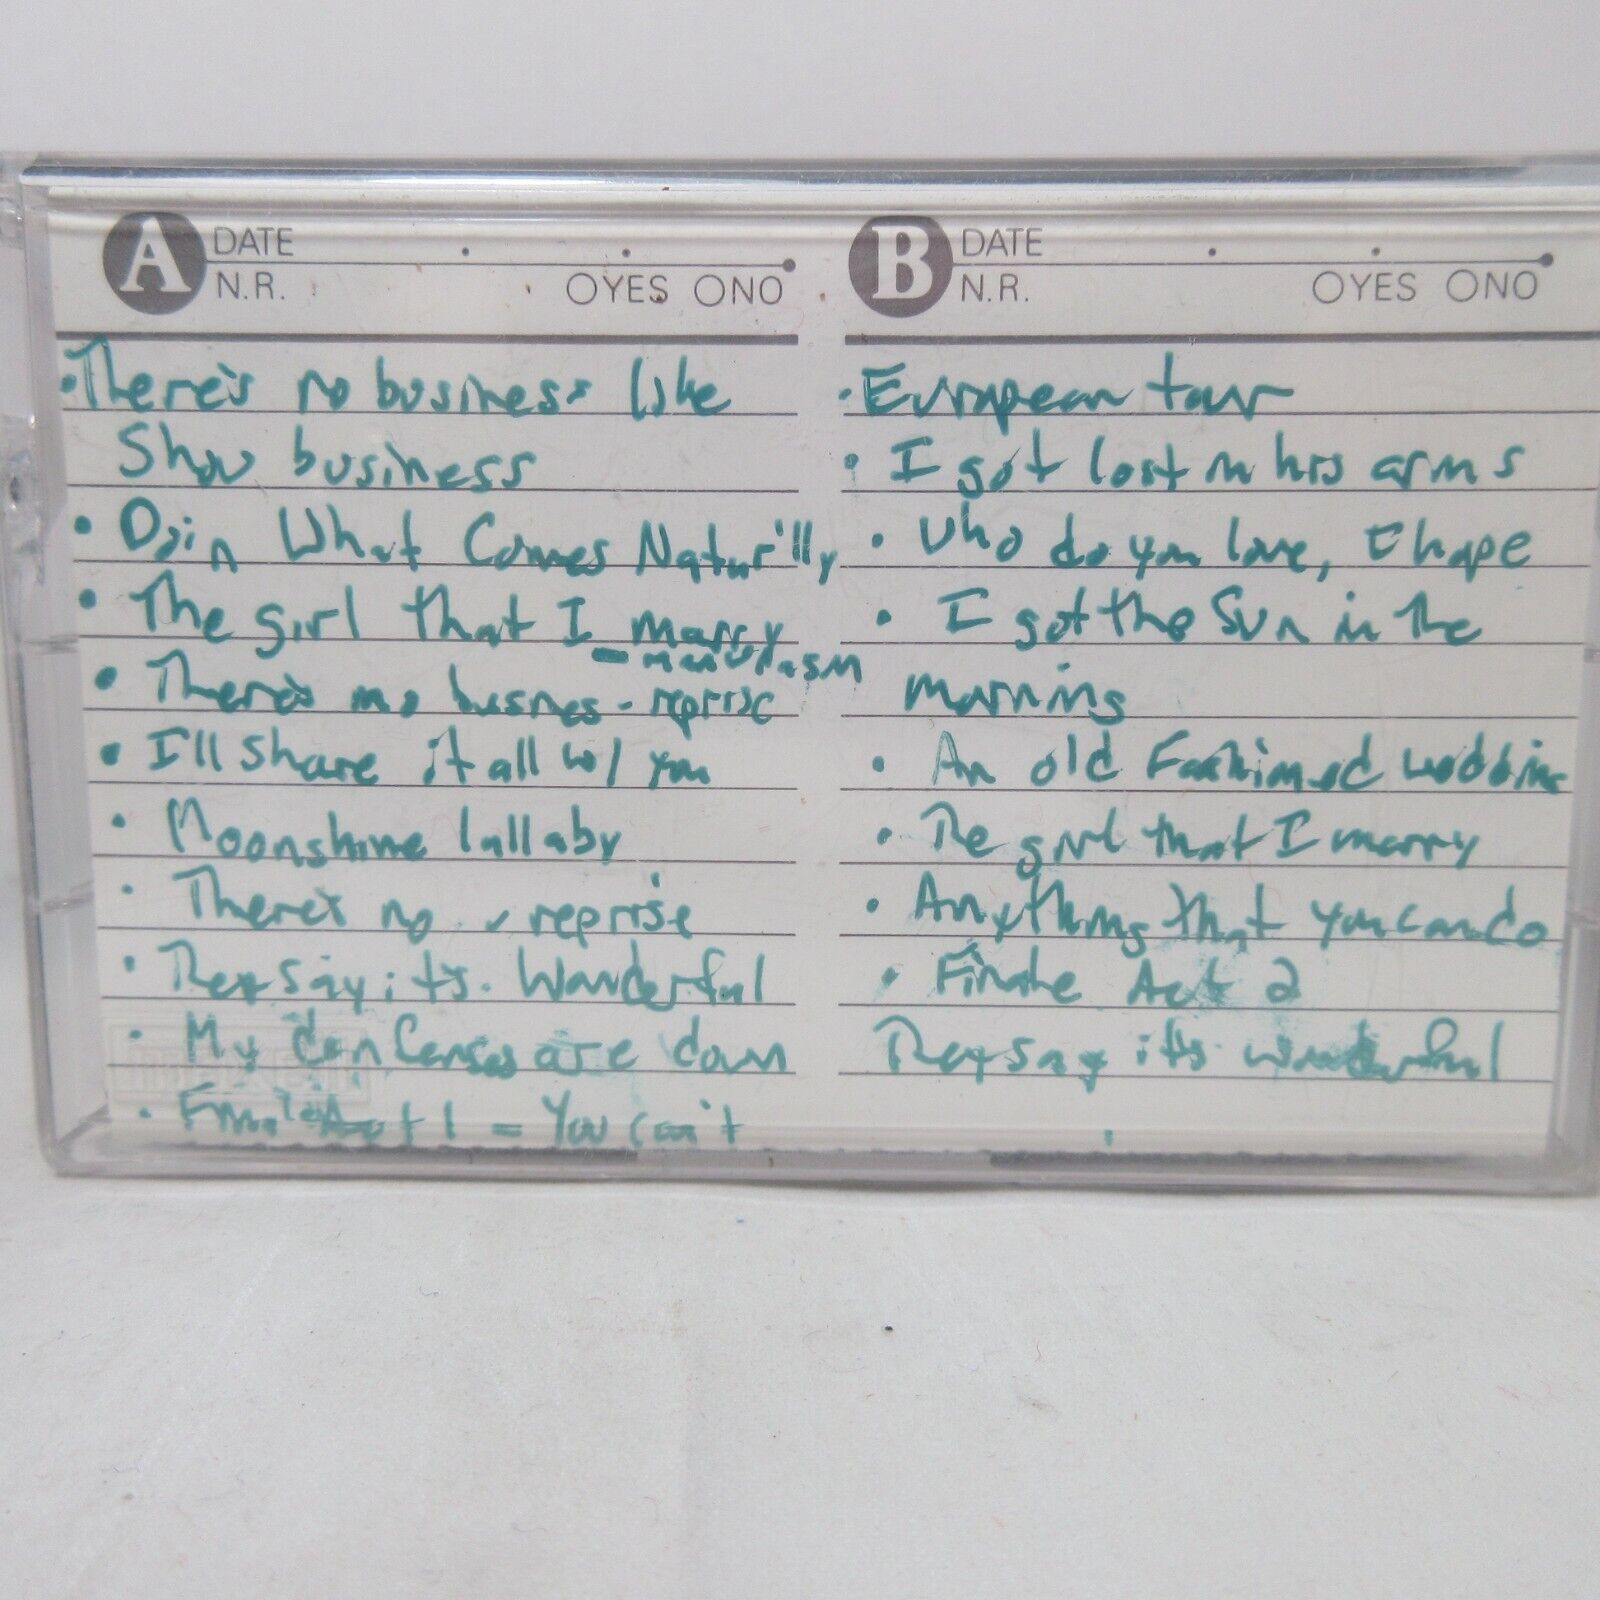 A DATE
N.R. OYES ONO
·There's no business like
Show business
· Doin What Comes Natur'lly
· The girl that I marry
· There's no busnes - reprise
· I'll share it all w/ you
· Moonshine lallaby
· There's no reprise
· They say it's Wonderful
· My defenses are down
· Finale Act 1 = You can't
B DATE
N.R. OYES ONO
· European tour
· I got lost in his arms
· Who do you love, I hope
· I got the Sun in the
morning
· An old Fashioned wedding
· The girl that I marry
· Anything that you can do
· Finale Act 2
They say it's wonderful